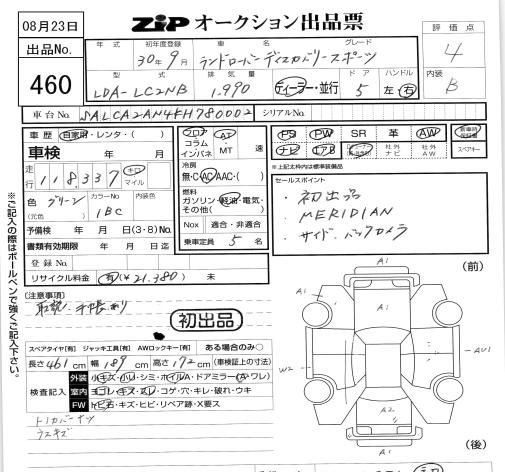 08月23日
ZIP オークション出品票
評価点
4
出品No.
460
年式
初年度登録
30年9月
車名
ランドローバー ディスカバリースポーツ
グレード
型式
LDA-LC2NB
排気量
1,990
ディーラー・並行
ドア
5
ハンドル
左・右
内装
B
車台No.
SALCA2AN4KH780002
シリアルNo.
車歴
自家用・レンタ・( )
車検
年 月
走行
118,337
キロ
マイル
色
グリーン
(元色)
カラーNo
1BC
内装色
予備検 年 月 日(3・8)No.
書類有効期限 年 月 日迄
登録No.
リサイクル料金
有(¥21,380) 未
フロア
コラム
インパネ
AT
・MT
速
冷房
無・C・AC・AAC・( )
燃料
ガソリン・軽油・電気・
その他( )
Nox 適合・非適合
乗車定員 5 名
PS PW SR 革 AW
ナビ エアB
社外ナビ
社外AW
スペアキー
*上記太枠内は標準装備品
セールスポイント
・初出品
・MERIDIAN
・サイド、バックカメラ
[注意事項]
取説 手帳あり
初出品
スペアタイヤ[有] ジャッキ工具[有] AWロックキー[有] ある場合のみ○
長さ 461 cm 幅 189 cm 高さ 172 cm (車検証上の寸法)
検査記入
外装
小キズ・小U・シミ・ホイルA・ドアミラー(A・ワレ)
室内
ヨゴレ・キズ・スレ・コゲ・穴・キレ・破れ・ウキ
FW
トビ石・キズ・ヒビ・リペア跡・X要ス
ウスキズ
※ご記入の際はボールペンで強くご記入下さい。
(前)
A1
A1
A1
AU1
W2
A2
A1
A1
A1
(後)